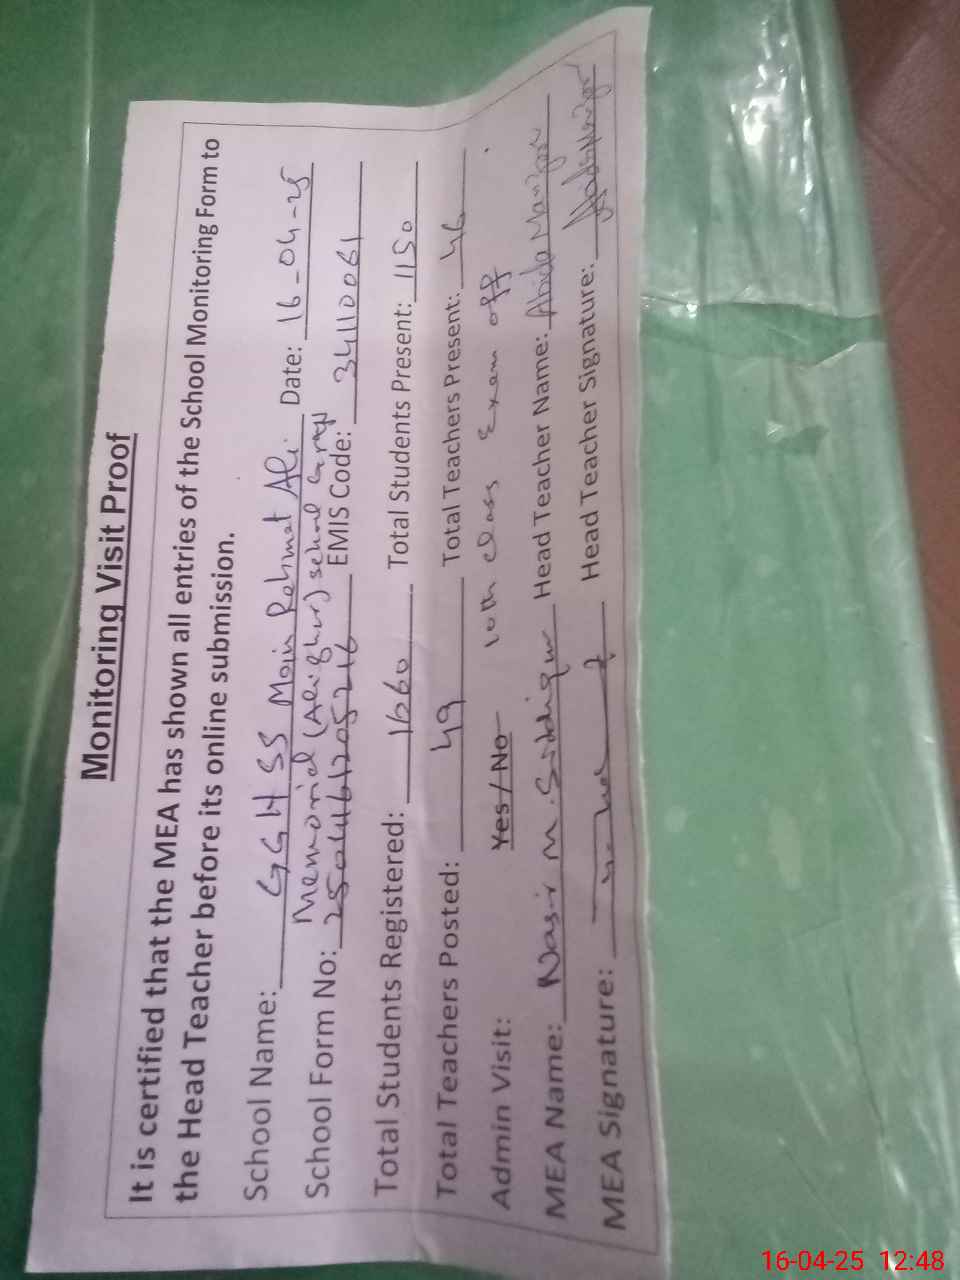 Monitoring Visit Proof
It is certified that the MEA has shown all entries of the School Monitoring Form to
the Head Teacher before its online submission.
School Name: GGHSS Main Rehmat Ali Date: 16-04-25
Memorial (Alighar) school
School Form No: EMIS Code: 34110061
Total Students Registered: 1660 Total Students Present: 1150
Total Teachers Posted: 49 Total Teachers Present: 46
Admin Visit: Yes / No 10th class Exam off
MEA Name: Nasir M. Siddique Head Teacher Name: Abida Manzoor
MEA Signature: Head Teacher Signature:
16-04-25 12:48